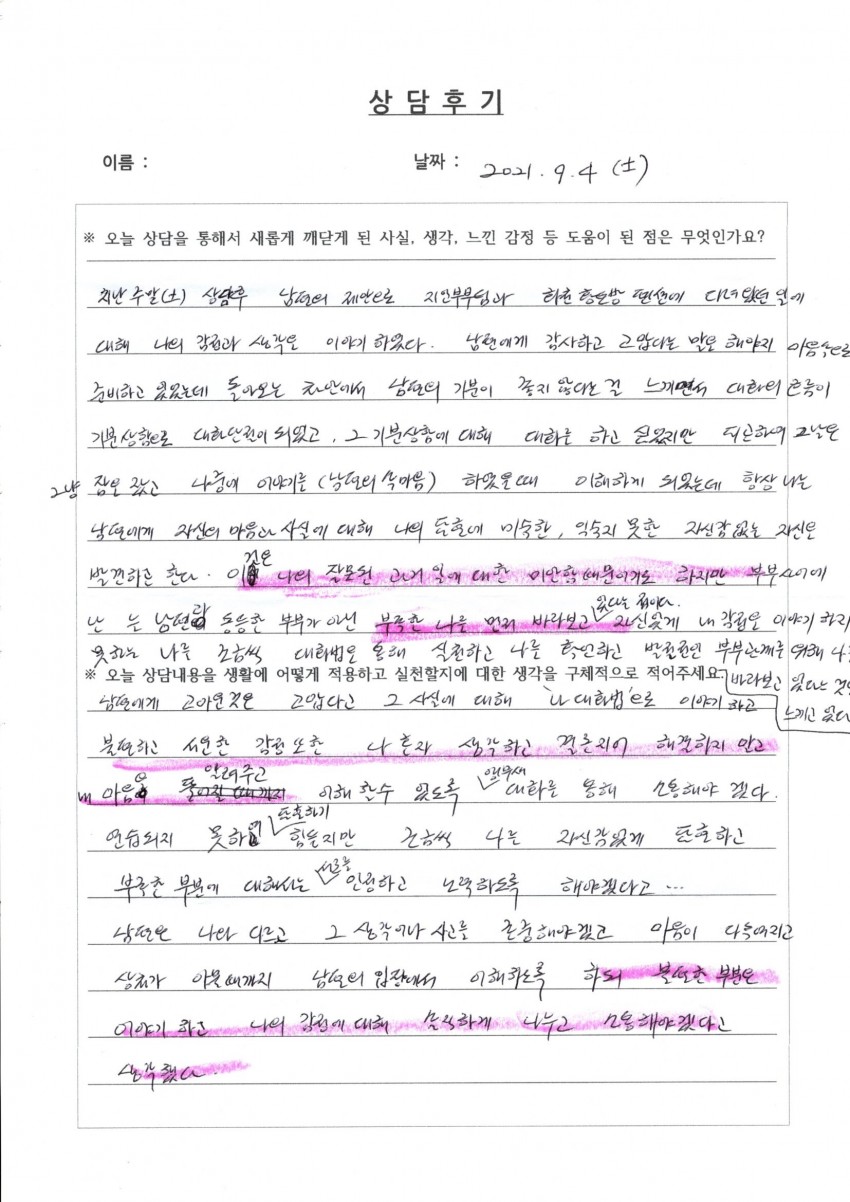 상 담 후 기
이름 :
날짜 : 2021. 9. 4 (土)
※ 오늘 상담을 통해서 새롭게 깨닫게 된 사실, 생각, 느낀 감정 등 도움이 된 점은 무엇인가요?
지난 주말(土) 상담후 남편의 제안으로 지인부부님과 황토방 펜션에 다녀 왔던 일에
대해 나의 감정과 생각을 이야기 하였다. 남편에게 감사하고 고맙다는 말을 해야지 마음속으로
준비하고 있었는데 돌아오는 차안에서 남편의 기분이 좋지 않다는 걸 느끼면서 대화의 흐름이
기분상함으로 대화단절이 되었고, 그 기분상함에 대해 대화를 하고 싶었지만 피곤하여 그날은
그냥 잠을 잤고 나중에 이야기를 (남편의 속마음) 하였을때 이해하게 되었는데 항상 나는
남편에게 자신의 마음과 사실에 대해 나의 표현에 미숙한, 익숙지 못한 자신감 없는 자신을
발견하곤 한다. 이것은 나의 잘못된 과거 일에 대한 미안함 때문이기도 하지만 부부사이에
난 는 남편과 동등한 부부가 아닌 부족한 나를 먼저 바라보고 있다는 점이다. 자신있게 내 감정을 이야기 하지
못하는 나를 조금씩 대화법을 통해 실천하고 나를 확인하고 발전적인 부부관계를 위해 나를
바라보고 있다는 것을
느끼고 있다
※ 오늘 상담내용을 생활에 어떻게 적용하고 실천할지에 대한 생각을 구체적으로 적어주세요.
남편에게 고마운것은 고맙다고 그 사실에 대해 '나 대화법'으로 이야기 하고
불편하고 서운한 감정 또한 나 혼자 생각하고 결론지어 해결하지 안고
내 마음을 알려주고 이해 할수 있도록 대화를 통해 소통해야 겠다.
연습되지 못하여 표현하기 힘들지만 조금씩 나를 자신감있게 표현하고
부족한 부분에 대해서는 서로를 인정하고 노력하도록 해야겠다고 ...
남편은 나와 다르고 그 생각이나 사고를 존중해야겠고 마음이 다독여지고
상처가 아물때까지 남편의 입장에서 이해하도록 하되 불편한 부분은
이야기 하고 나의 감정에 대해 솔직하게 나누고 소통해야겠다고
생각했다.